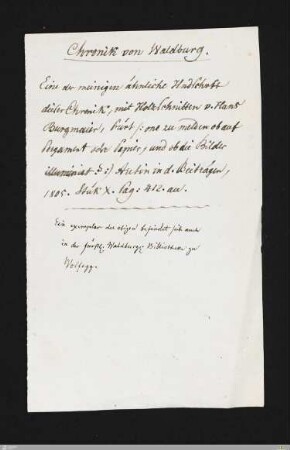 Chronik von Waldburg.
Eine der meinigen ähnliche Hndschrift
dieser Chronik, mit Holzschnitten v. Hans
Burgmaier, führt /: one zu melden ob auf
Pergament oder Papier, und ob die Bilder
illuminirt :/ Aretin in d. Beiträgen,
1805. Stük X. pag: 412. an.
Ein exemplar des obigen befindet sich auch
in der fürstl. Waldburgs. Bibliothek zu
Wolfegg.